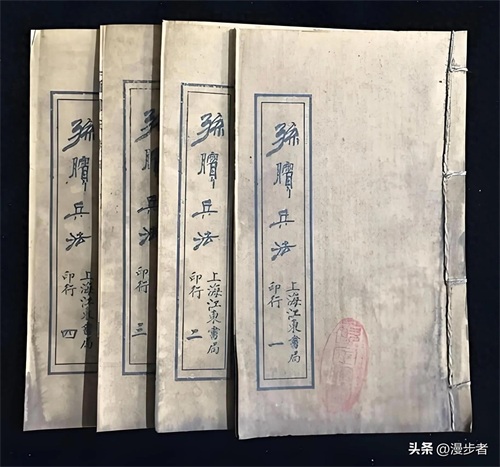 孫臏兵法
上海江東書局
印行 一
孫臏兵法
上海江東書局
印行 二
孫臏兵法
印行 三
孫臏兵法
上海江東書局
印行 四
头条 @漫步者